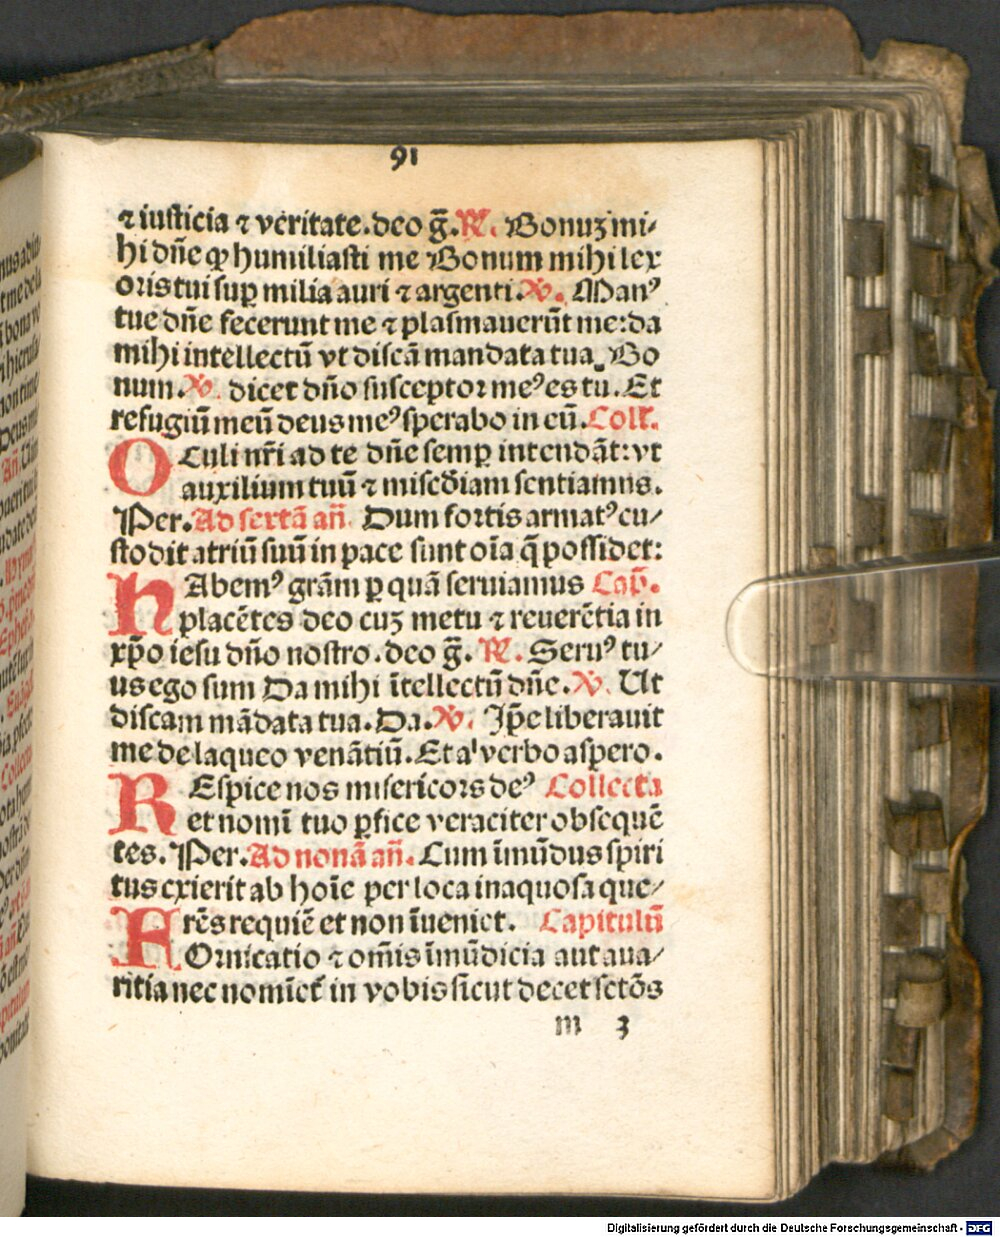 91
⁊ iusticia ⁊ veritate.deo g̃.℟. Bonuʒ mi-
hi dñe ꝙ humiliasti me Bonum mihi lex
oris tui suꝑ milia auri ⁊ argenti.℣. Manꝰ
tue dñe fecerunt me ⁊ plasmauerūt me:da
mihi intellectū vt discā mandata tua. Bo
num.℣. dicet dño susceptor meꝰ es tu. Et
refugiū meū deus meꝰ sperabo in eū.Coll'.
OCuli nr̃i ad te dñe semꝑ intendāt:vt
auxilium tuū ⁊ misc̃diam sentiamus.
Per.Ad sextā añ. Dum fortis armatꝰ cu/
stodit atriū suū in pace sunt oīa q̄ possidet:
HAbemꝰ grãm ꝑ quā seruiamus Cap̃.
placētes deo cuʒ metu ⁊ reuerētia in
xp̃o iesu dño nostro.deo g̃. ℟. Seruꝰ tu/
us ego sum Da mihi ītellectū dñe.℣. Ut
discam mādata tua.Da.℣. Ip̃e liberauit
me de laqueo venātiū.Et a' verbo aspero.
REspice nos misericors deꝰ Collecta
et nomī tuo ꝑfice veraciter obsequē
tes. Per.Ad nonā añ. Cum īmūdus spiri
tus exierit ab hoīe per loca inaquosa que/
rēs requiē et non īueniet. Capitulū
FOrnicatio ⁊ om̃is īmūdicia aut aua/
ritia nec nomīet̃ in vobis sicut decet sctōs
m 3
Digitalisierung gefördert durch die Deutsche Forschungsgemeinschaft - DFG